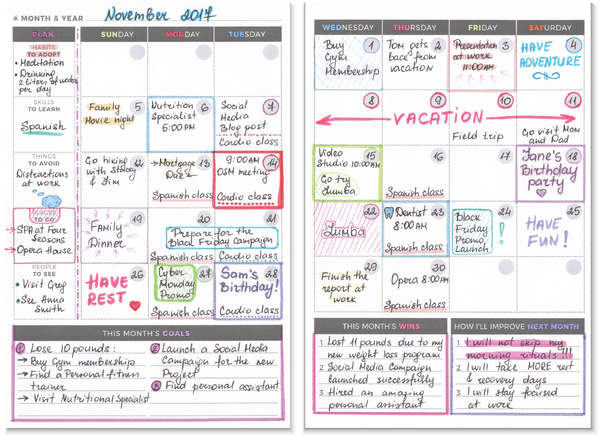 MONTH & YEAR November 2017
PLAN SUNDAY MONDAY TUESDAY
HABITS
TO ADOPT
• Meditation
• Drinking
2 liters of water
per day
SKILLS
TO LEARN
Spanish
Family
Movie night
5
Nutrition
Specialist
5:00PM
6
Social
Media
Blog post
Cardio class
7
THINGS
TO AVOID
Distractions
at work
Go hiking
with Stacey
& Jim
12
→ Mortgage
Due
Spanish class
13
9:00AM
OSM meeting
Cardio class
14
PLACES
TO GO
→ SPA at Four
Seasons
→ Opera House
Family
Dinner
19
20
Prepare for the
Black Friday Campaign
Spanish class
21
Cardio class
PEOPLE
TO SEE
• Visit Greg
• See Anna
Smith
HAVE
REST
26
Cyber
Monday
Promo
Spanish class
27
Sam's
Birthday!
Cardio class
28
THIS MONTH'S GOALS
1 Lose 10 pounds:
→ Buy Gym membership
→ Find a Personal fitness
trainer
→ Visit Nutritional Specialist
2 Launch a Social Media
Campaign for the new
Project
3 Find personal assistant
WEDNESDAY THURSDAY FRIDAY SATURDAY
Buy
Gym
Membership
1
Tom gets
back from
vacation
2
Presentation
at work
11:00AM
3
HAVE
ADVENTURE
4
8 9 10 11
VACATION
Field trip
Go visit Mom
and Dad
Video
Studio 10:00AM
Go try
Zumba
15
Spanish class
16
17
Jane's
Birthday
party
18
Zumba
22
Dentist
8:00AM
Spanish class
23
Black
Friday
Promo
Launch
!
24
HAVE
FUN!
25
Finish the
report at
work
29
Opera 8:00PM
Spanish class
30
THIS MONTH'S WINS
1 Lost 11 pounds due to my
new weight loss program
2 Social Media Campaign
launched successfully
3 Hired an amazing
personal assistant
HOW I'LL IMPROVE NEXT MONTH
1 I will not skip my
morning rituals!!!
2 I will take MORE rest
& recovery days
3 I will stay focused
at work